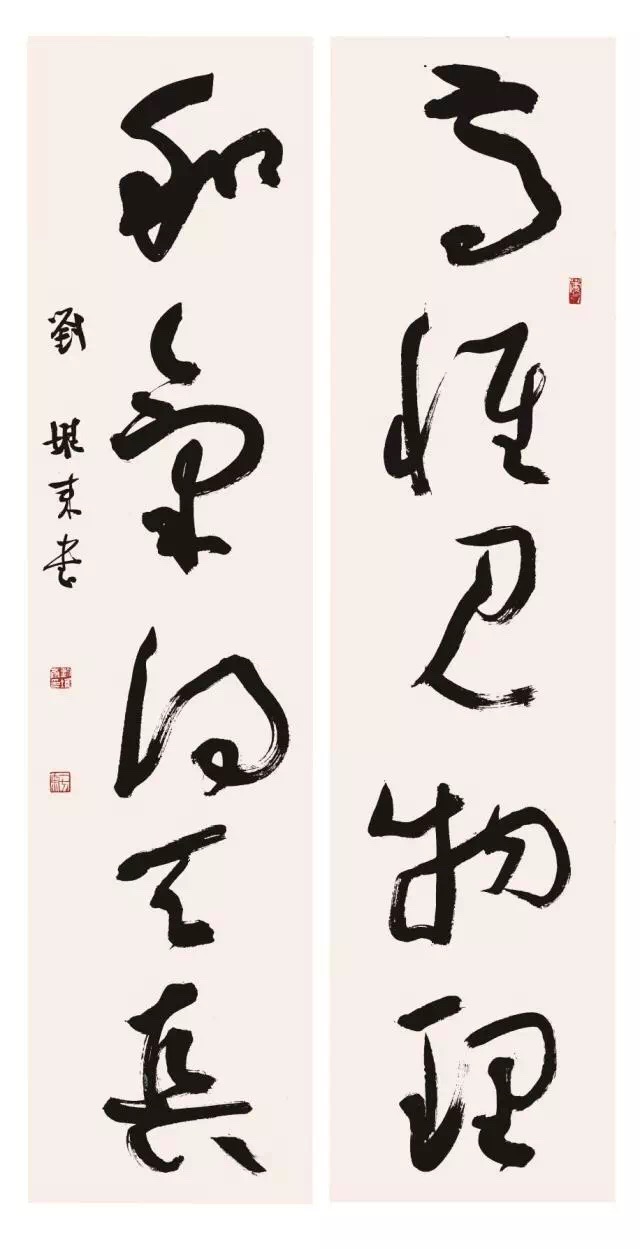 高懷見物理
和氣得天真
劉 書